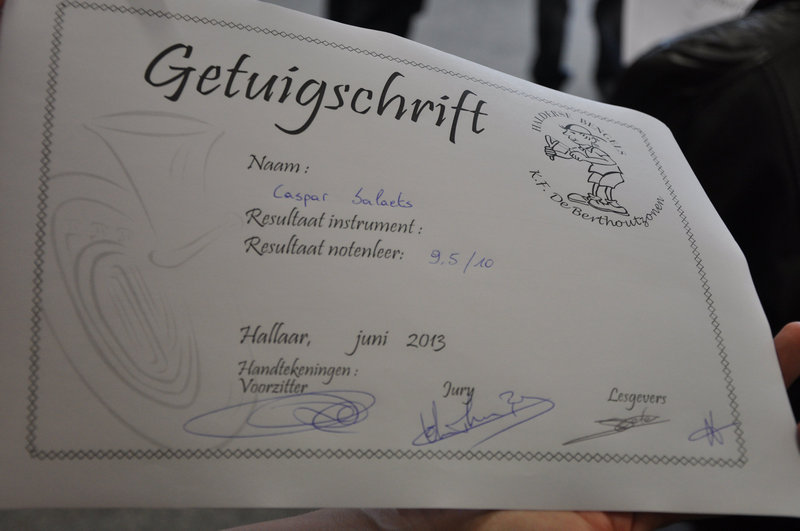 Getuigschrift
HALDERSE BENGELS
K.F. De Berthoutzonen
Naam :
Caspar Salaets
Resultaat instrument :
Resultaat notenleer: 9,5/10
Hallaar, juni 2013
Handtekeningen :
Voorzitter Jury Lesgevers